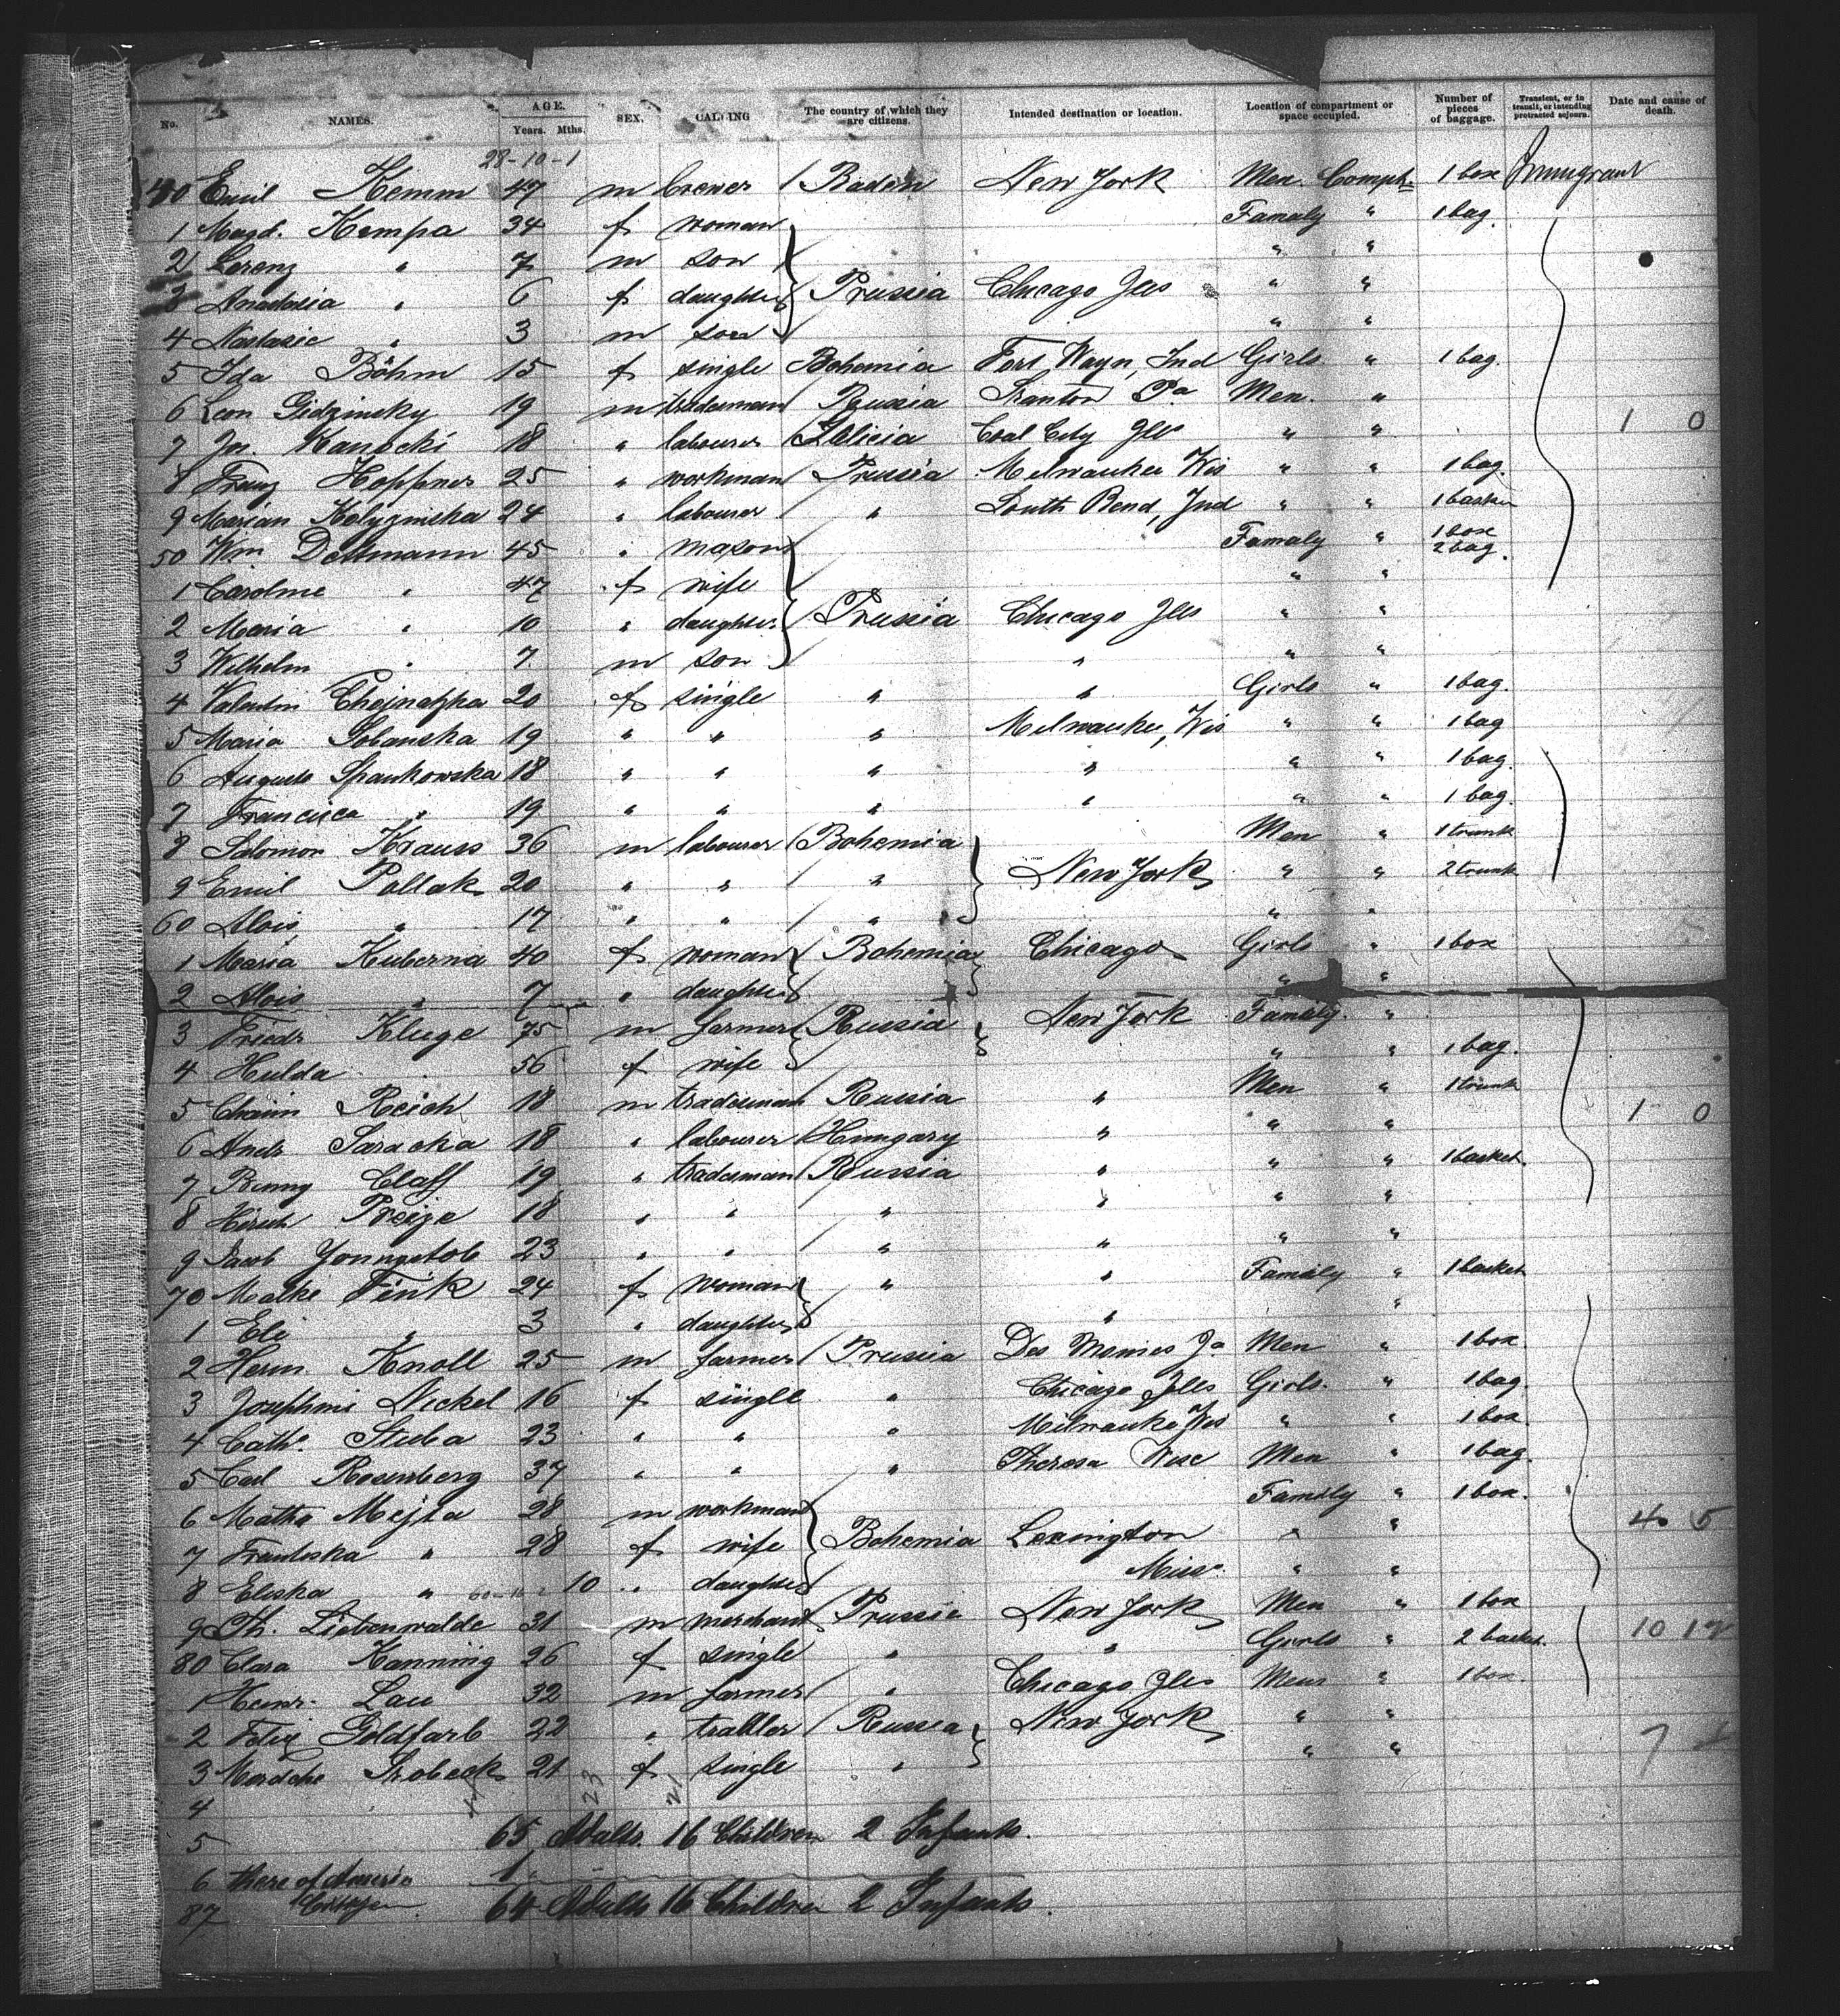 No. NAMES. AGE. Years. Mths. SEX. CALLING The country of which they are citizens. Intended destination or location. Location of compartment or space occupied. Number of pieces of baggage. Transient, or in transit, or intending protracted sojourn. Date and cause of death.
28-10-1
40 Emil Kemm 47 m brewer Baden New York Men. Compt. 1 box Immigrant
1 Magd. Kempa 34 f woman Famaly " 1 bag.
2 Lorenz " 7 m son " "
3 Anastasia " 6 f daughter Prussia Chicago Ills " "
4 Nastasie " 3 m son " "
5 Ida Böhm 15 f single Bohemia Fort Wayn, Ind Girls " 1 bag.
6 Leon Gidzinsky 19 m tradesman Russia Skranton Pa Men. "
7 Jos. Kanocki 18 " labourer Galicia Coal City Ills " " 1 0
8 Franz Hoppner 25 " workman Prussia Milwaukee Wis " " 1 bag.
9 Marian Kolyzinska 24 " labourer " South Bend, Ind " " 1 basket
50 Wm. Dettmann 45 " mason Famaly " 1 box 2 bag.
1 Caroline " 47 f wife " "
2 Maria " 10 " daughter Prussia Chicago Ills " "
3 Wilhelm " 7 m son " " "
4 Valentin 20 f single " " Girls " 1 bag.
5 Maria Sobanska 19 " " " Milwaukee, Wis " " 1 bag
6 Auguste Spankowska 18 " " " " " " 1 bag.
7 Francisca " 19 " " " " " " 1 bag.
8 Salomon Krauss 36 m labourer Bohemia Men " 1 trunk
9 Emil Pollak 20 " " " New York " " 2 trunk
60 Alois " 17 " " " " "
1 Maria Kuberna 40 f woman Bohemia Chicago Girls " 1 box
2 Alois " 7 " daughter " "
3 Friedr Kluge 75 m farmer Russia New York Famaly "
4 Hulda 56 f wife " " 1 bag.
5 Chaim Reich 18 m tradesman Russia " Men " 1 trunk 1 0
6 Andr Saracka 18 " labourer Hungary " " "
7 Benny Claff 19 " tradesman Russia " " " 1 basket.
8 Hirsch Preize 18 " " " " " "
9 Jacob Youngstob 23 " " " " " "
70 Malke Fink 24 f woman " " Famaly " 1 basket
1 Eli " 3 " daughter " "
2 Herm. Knoll 25 m farmer Prussia Des Monies Ja Men " 1 box
3 Josephine Nickel 16 f single " Chicago Ills Girls. " 1 bag.
4 Cath. Stuba 23 " " " Milwauke Wis " " 1 box.
5 Carl Rosenberg 37 " " " Theresa Wisc Men " 1 bag.
6 Matha Mejta 28 m workman Famaly " 1 box.
7 Frantiska " 28 f wife Bohemia Lexington " " 4 5
8 Eliska " 10 " daughter Miss. " "
9 Th. Liebenwalde 31 m merchant Prussia New York Men " 1 box
80 Clara Kanning 26 f single " " Girls " 2 basket. 10 12
1 Heinr. Lau 32 m farmer " Chicago Ills Mens " 1 box.
2 Felix Goldfarb 22 " Russia New York " "
3 Mordche Skobeck 21 f single " " " 7
4 23 21
5 65 Adults. 16 Children 2 Infants.
6 there of America 1
87 Citizen 64 Adults 16 Children 2 Infants.